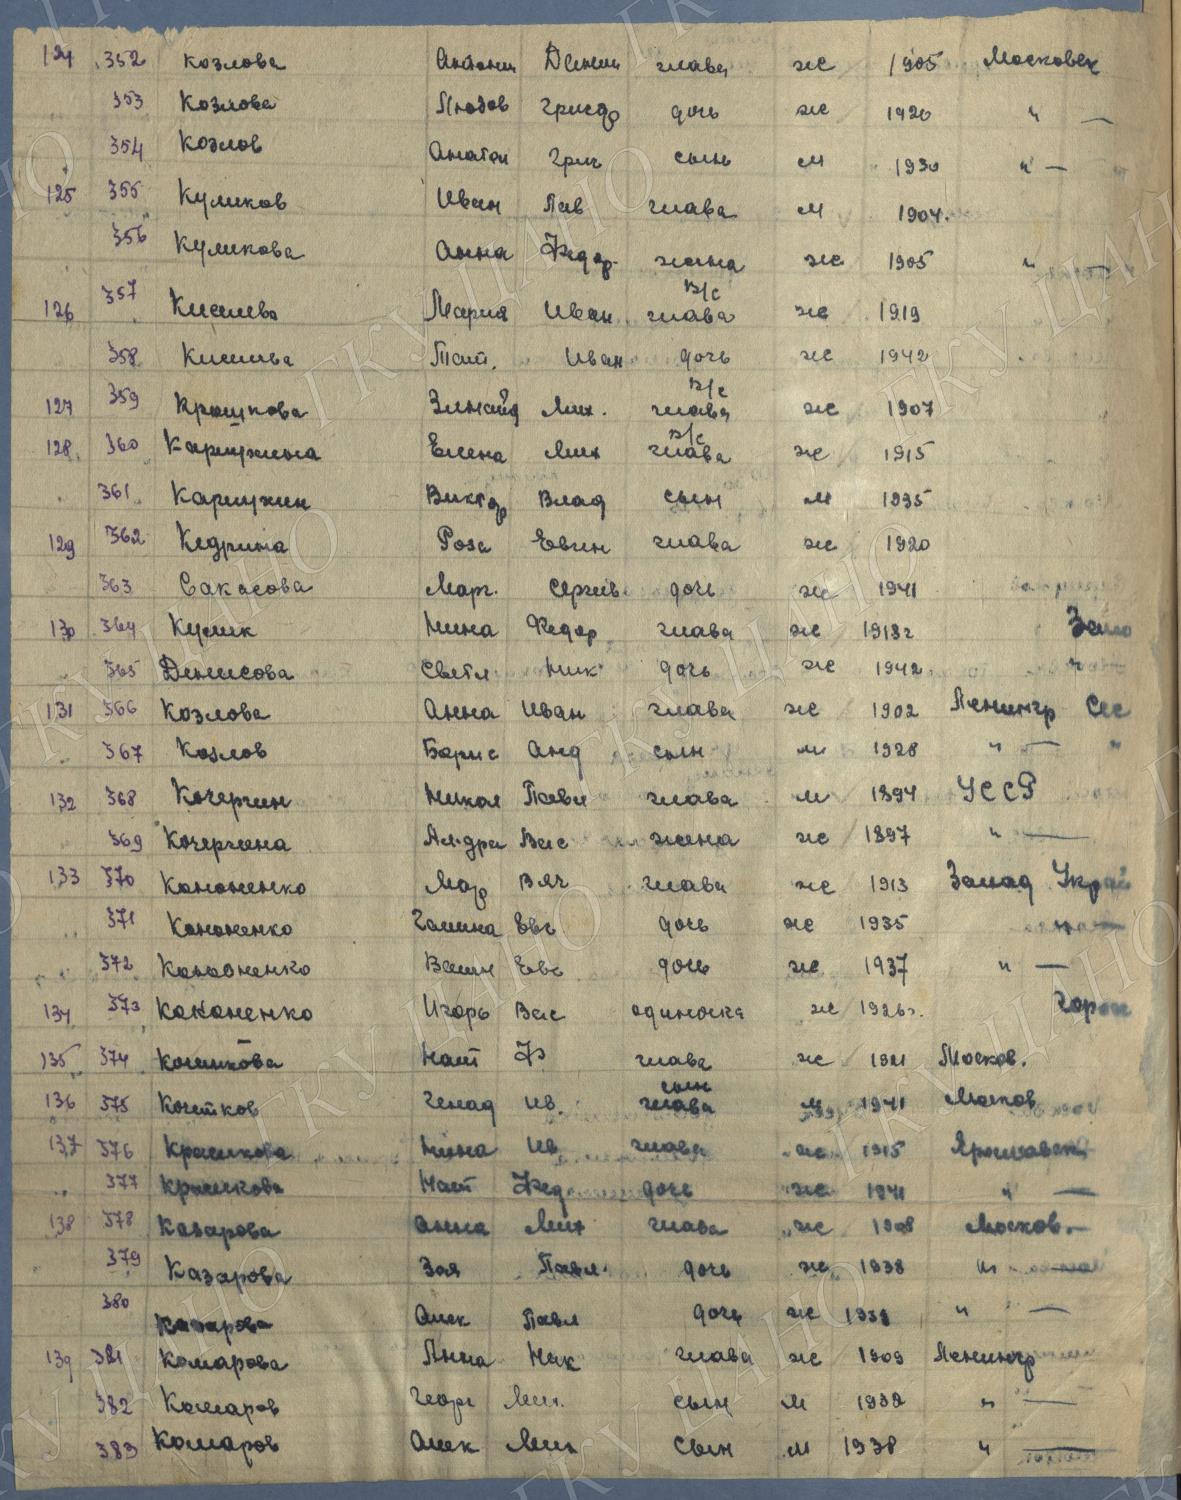 124 352 Козлова Антонин Дении глава ж 1905 Московск
353 Козлова Любов Григор дочь ж 1920 " —
354 Козлов Анатол Григ сын м 1930 " —
125 355 Куликов Иван Пав глава м 1904.
356 Куликова Анна Федор. жена ж 1905 "
126 357 Киселева Мария Иван глава в/с ж 1919
358 Киселева Тат. Иван дочь ж 1942
127 359 Крюкова Зинаид Мих. глава в/с ж 1907
128 360 Каришина Елена Мих глава в/с ж 1915
361 Виктор Влад сын м 1935
129 362 Кедрина Роза Евген глава ж 1920
363 Марг. Сергеев дочь ж 1941
130 364 Кулик Нина Федор глава ж 1918г
365 Денисова Светл Ник дочь ж 1942 " —
131 366 Козлова Анна Иван глава ж 1902 Ленингр
367 Козлов Борис Анд сын м 1928 " — "
132 368 Кочергин Никол Павл глава м 1894 УССР
369 Кочергина Ал-дра Вас жена ж 1897 " —
133 370 Кононенко Мар Вяч глава ж 1913 Запад Украи
371 Кононенко Галина Евг дочь ж 1935 " —
372 Кононенко Вален Евг дочь ж 1937 " —
134 373 Кононенко Игорь Вас одиночка ж 1926г.
135 374 Нат Ф глава ж 1921 Москов.
136 375 Кочетков Генад Ив. сын глава м 1941 Москов
137 376 Крылкова Нина Ив глава ж 1915 Ярославск
377 Крылкова Нат Фед дочь ж 1941 " —
138 378 Казарова Анна Мих глава ж 1908 Москов. —
379 Казарова Зоя Павл. дочь ж 1938 " —
380 Казарова Алек Павл дочь ж 1939 " —
139 381 Комарова Анна Ник глава ж 1909 Ленингр
382 Комаров Георг Мих. сын м 1932 " —
383 Комаров Алек Мих сын м 1938 " —
ГКУ ЦАНО